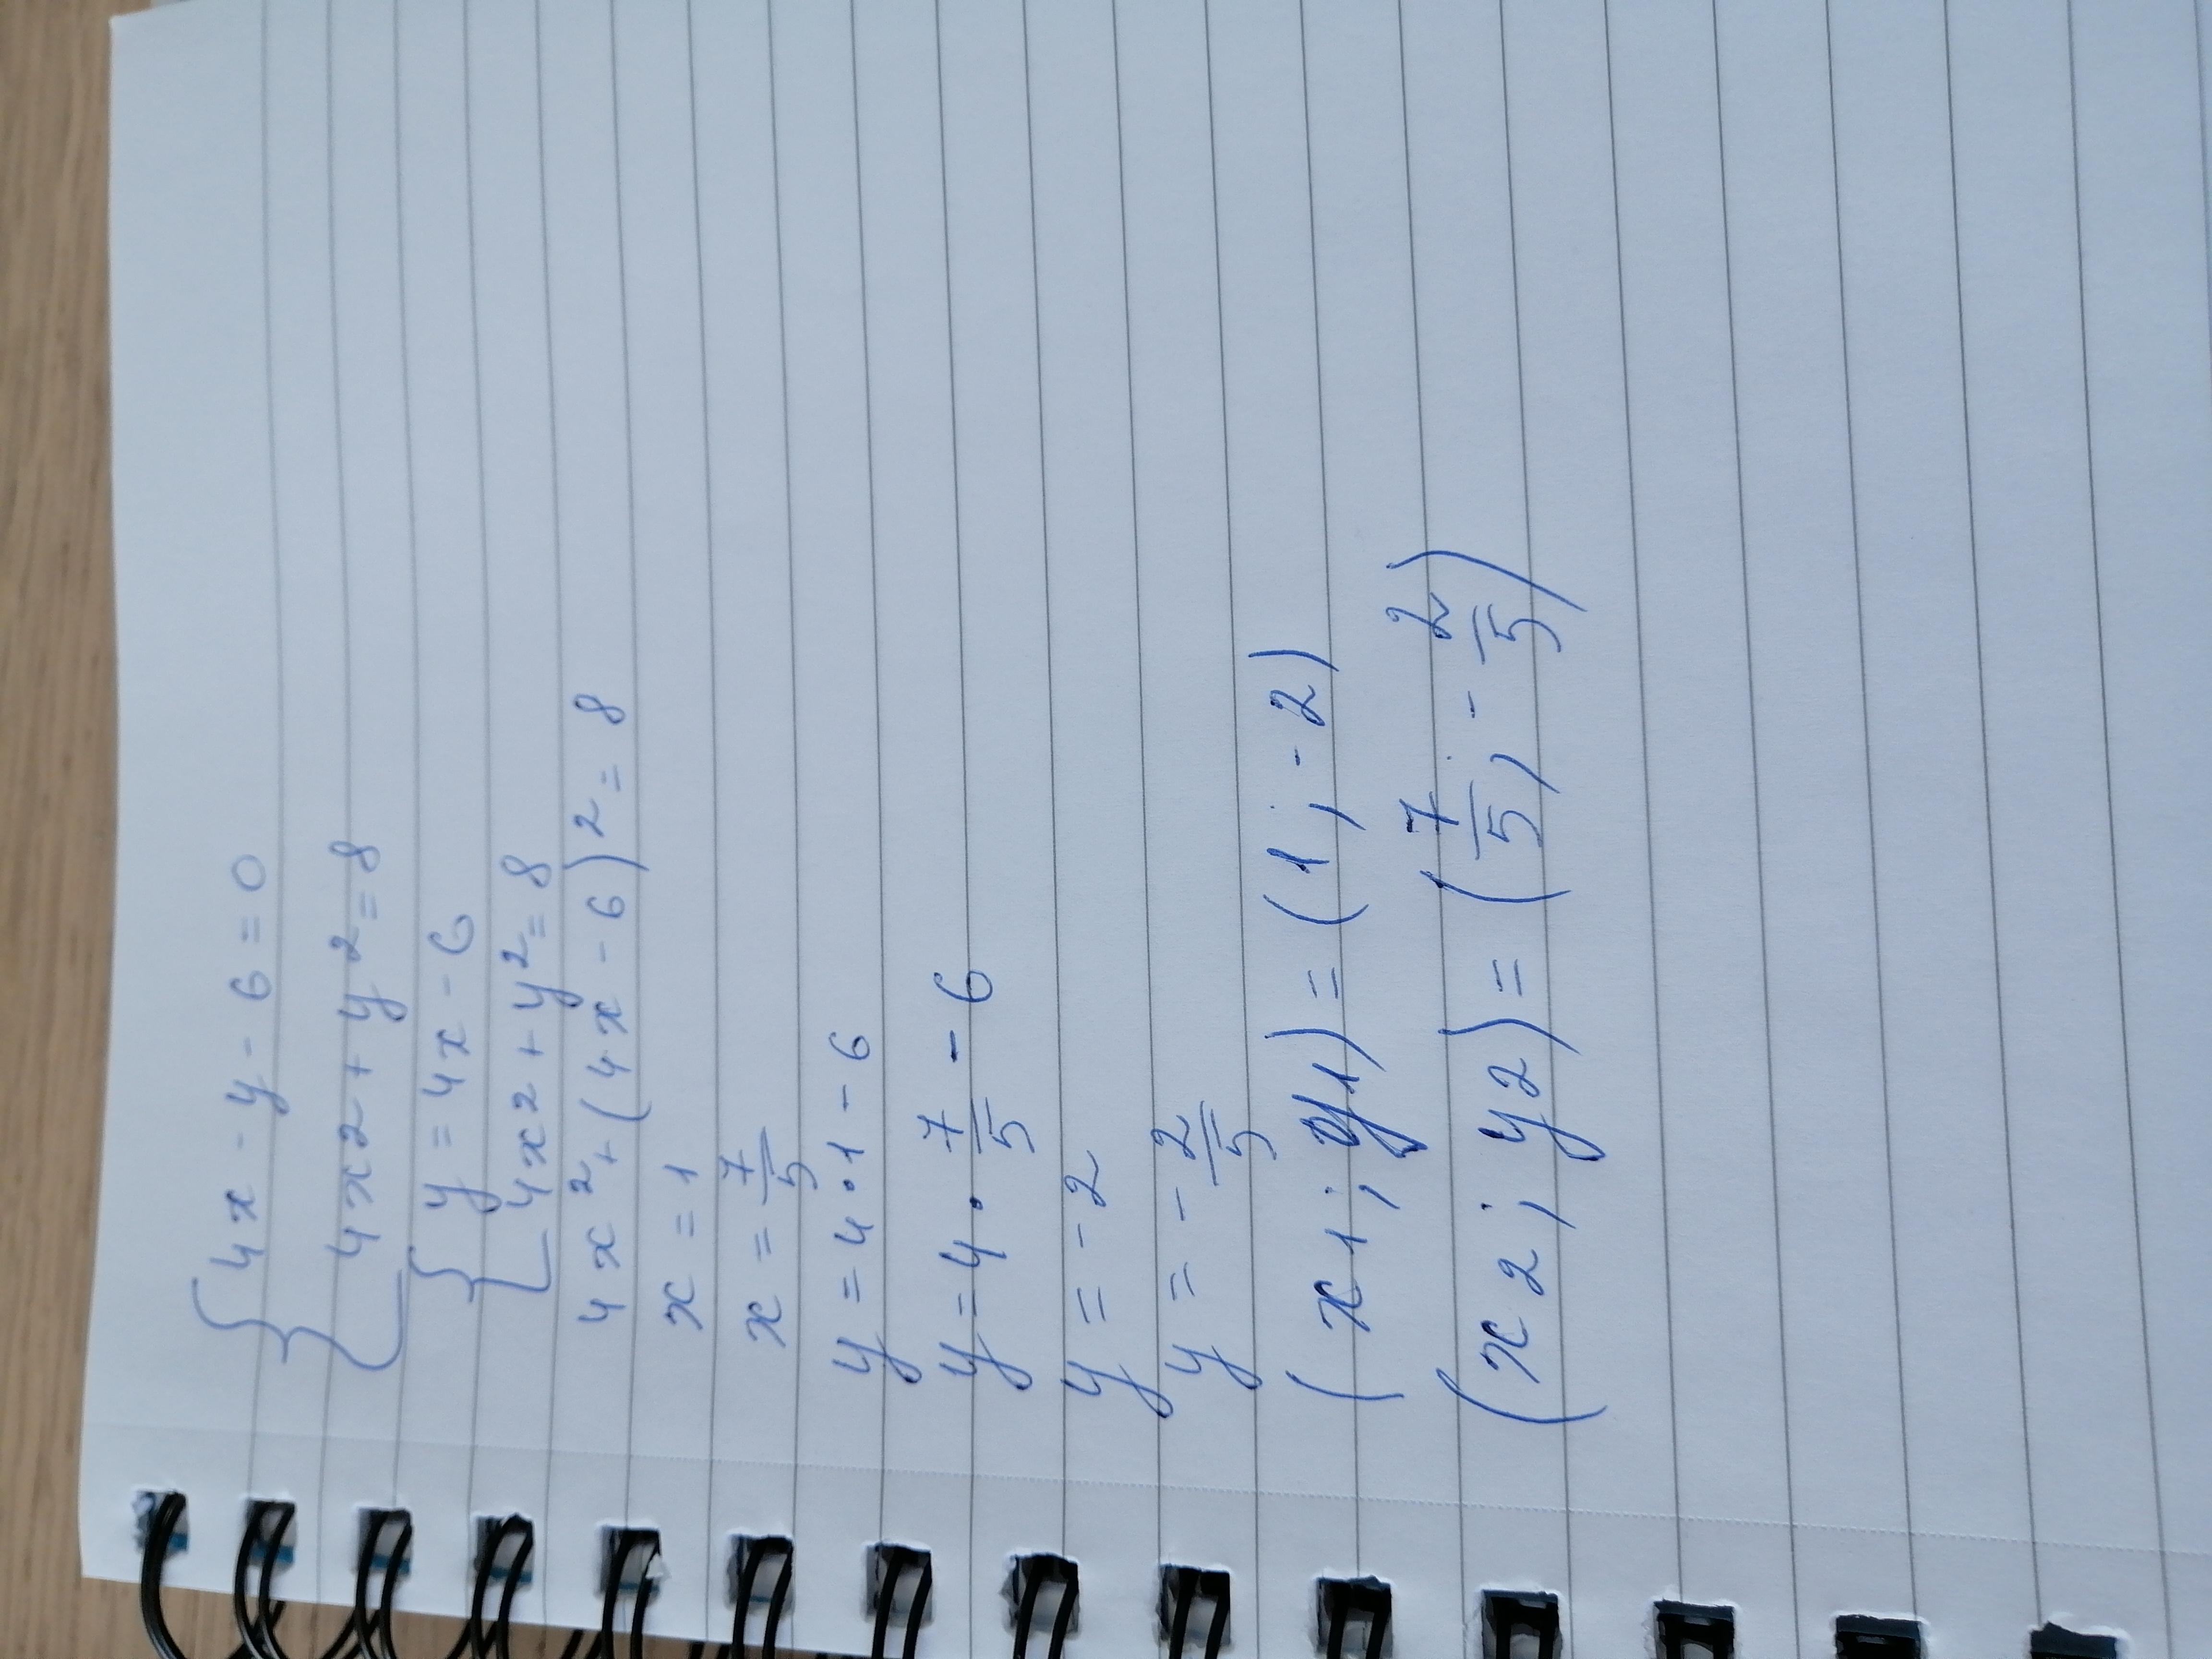 { 4x - y - 6 = 0
4x2 + y² = 8
{ y = 4x - 6
4x2 + y² = 8
4x² + (4x - 6)2 = 8
x = 1
x = 7/5
y = 4 · 1 - 6
y = 4 · 7/5 - 6
y = -2
y = - 2/5
(x1; y1) = (1; -2)
(x2; y2) = (7/5; - 2/5)